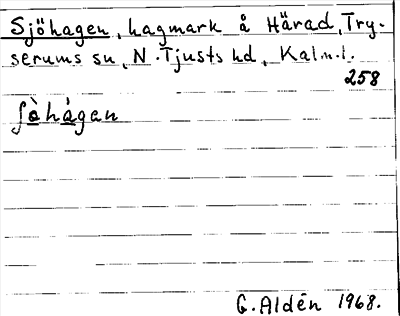 Sjöhagen, hagmark å Härad, Try-
serums sn, N. Tjusts hd, Kalm. l.
258
ʃòhágan
G. Aldén 1968.